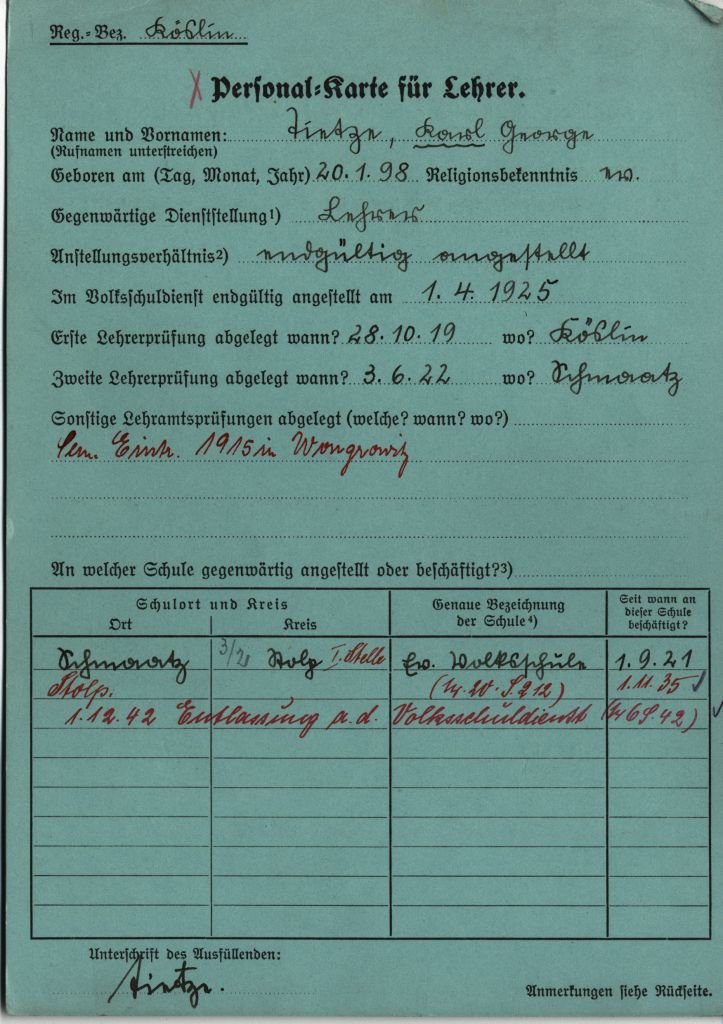 Reg.-Bez. Köslin
X Personal-Karte für Lehrer.
Name und Vornamen: Tietze, Karl George
(Rufnamen unterstreichen)
Geboren am (Tag, Monat, Jahr) 20.1.98 Religionsbekenntnis ev.
Gegenwärtige Dienststellung¹) Lehrer
Anstellungsverhältnis²) endgültig angestellt
Im Volksschuldienst endgültig angestellt am 1.4.1925
Erste Lehrerprüfung abgelegt wann? 28.10.19 wo? Köslin
Zweite Lehrerprüfung abgelegt wann? 3.6.22 wo? Schmaatz
Sonstige Lehramtsprüfungen abgelegt (welche? wann? wo?)
Sem. Eintr. 1915 in Wongrowitz
An welcher Schule gegenwärtig angestellt oder beschäftigt?³)
Schulort und Kreis
Ort Kreis
Genaue Bezeichnung der Schule⁴)
Seit wann an dieser Schule beschäftigt?
Schmaatz Stolp I. Stelle Ev. Volksschule 1.9.21
Stolp. 1.11.35
1.12.42 Entlassung a.d. Volksschuldienst
Unterschrift des Ausfüllenden:
Tietze.
Anmerkungen siehe Rückseite.